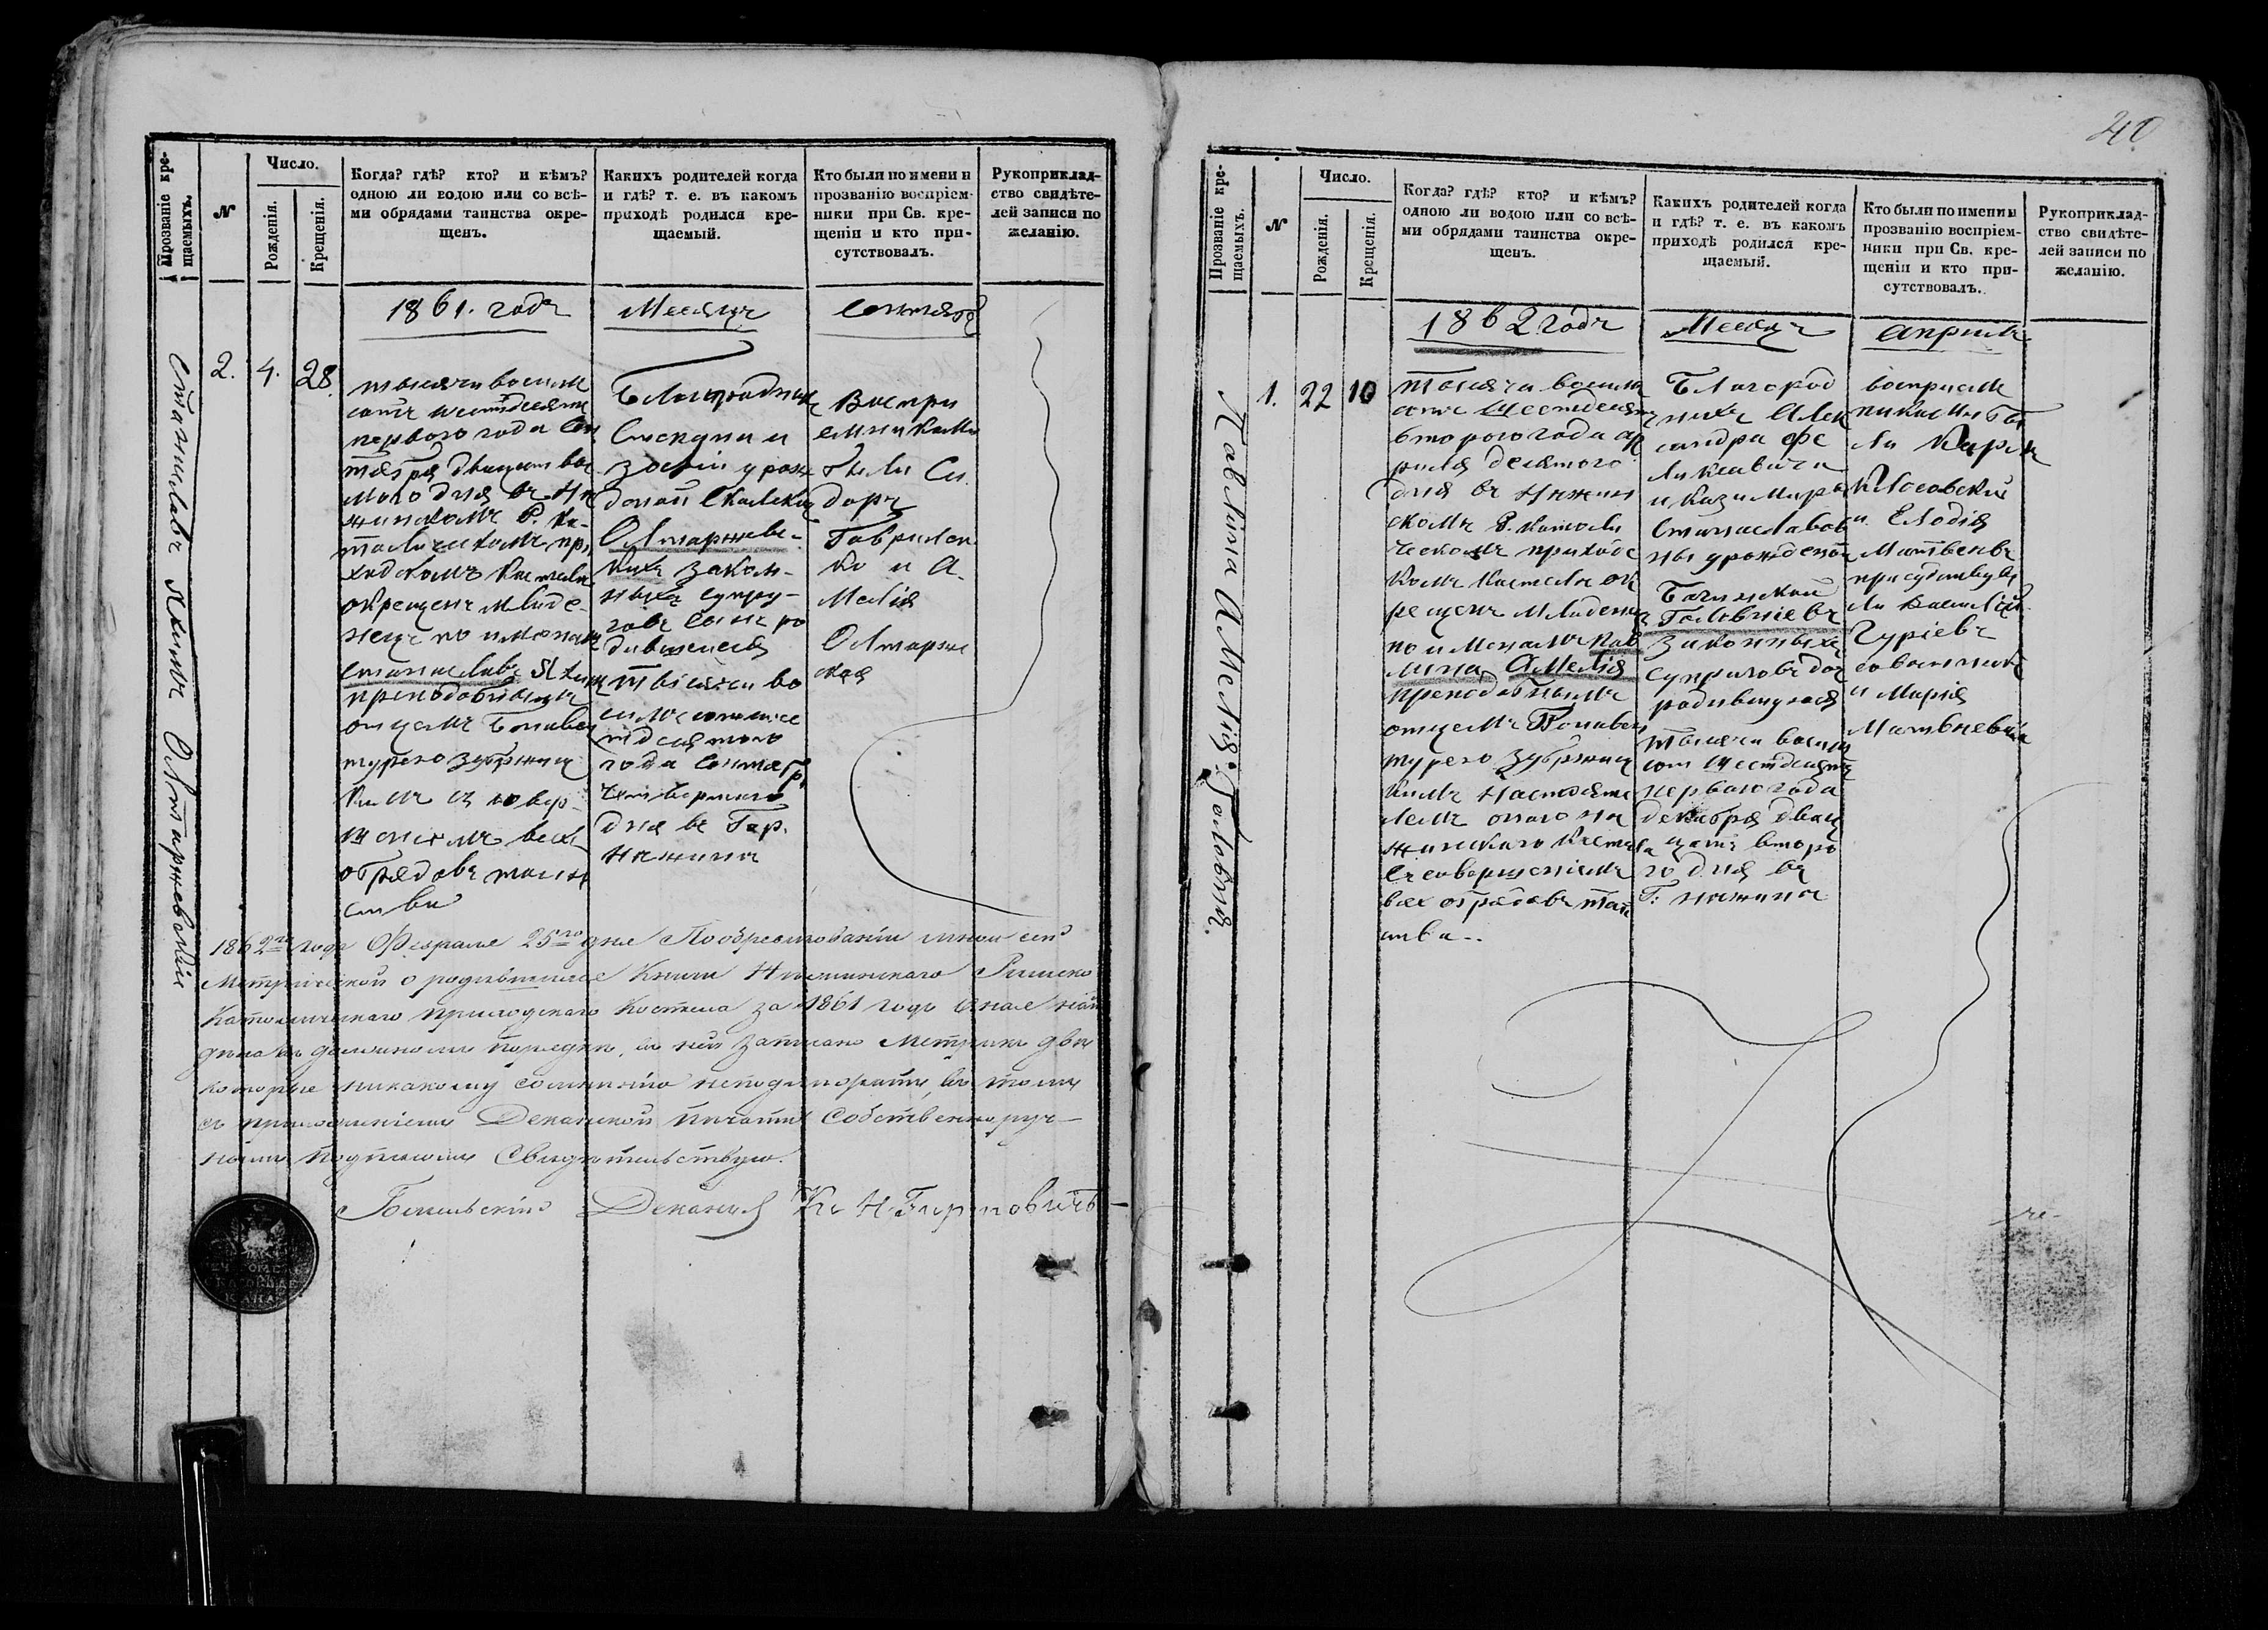 Прозваніе кре-
щаемыхъ.
N
Число.
Рожденія.
Крещенія.
Когда? гдѣ? кто? и кѣмъ?
одною ли водою или со всѣ-
ми обрядами таинства окре-
щенъ.
Какихъ родителей когда
и гдѣ? т. е. въ какомъ
приходѣ родился кре-
щаемый.
Кто были по имени и
прозванію воспріем-
ники при Св. кре-
щеніи и кто при-
сутствовалъ.
Рукоприклад-
ство свидѣте-
лей записи по
желанію.
1861. года
Месяцъ
Сентябрь
Станиславъ Якимъ Олтаржевскій
2.
4.
28.
тысяча восемь
сотъ шестдесятъ
первого года Сен
тября двацать вос
мого дня въ Не
жинскомъ Р. Ка-
толическомъ при
ходскомъ костеле
окрещенъ младе-
нецъ по именамъ
Станиславъ Яким
преподобнымъ
отцемъ Бонавен
турего Зубржиц
кимъ съ совер-
шениемъ всех
обрядовъ таин
ства
Благородных
и
Зофіи урож
доной
Олтаржевс-
кихъ закон-
ныхъ супру-
говъ сынъ ро
дившейся
тысяча во
семъ сотъ шес
тдесятого
года Сентябр
четвертого
дня въ Гор.
Нежина
Воспри
емниками
были Си
доръ
Гаврилен
ко и А
мелія
Олтаржев
ская
1862го года Февраля 25го дня По обревизованіи мною сей
Метрической о родившихся Книги Нѣжинскаго Римско
Католическаго приходскаго Костела за 1861 годъ оная най
дена въ должномъ порядкѣ, въ ней записано Метрикъ двѣ
которые никакому сомнѣнію неподлежатъ, въ томъ
съ приложеніемъ Деканской печати собственноруч-
нымъ подписомъ Свидѣтельствую.
Гомельскій Деканъ Кс Н. Гирповичъ
40
Прозваніе кре-
щаемыхъ.
N
Число.
Рожденія.
Крещенія.
Когда? гдѣ? кто? и кѣмъ?
одною ли водою или со всѣ-
ми обрядами таинства окре-
щенъ.
Какихъ родителей когда
и гдѣ? т. е. въ какомъ
приходѣ родился кре-
щаемый.
Кто были по имени и
прозванію воспріем-
ники при Св. кре-
щеніи и кто при-
сутствовалъ.
Рукоприклад-
ство свидѣте-
лей записи по
желанію.
1862 годъ
Месяцъ
априль
Павлина Амелія Головня.
1.
22
10
тысяча восемь
сотъ шестдесятъ
второго года ап
риля десятого
дня въ Нежин
скомъ Р. Католи
ческомъ приходс
комъ костеле ок
рещенъ младенец
по именамъ Пав
лина Амелія
преподобнымъ
отцемъ Бонавен
турего Зубржиц
кимъ настояте
лемъ оного не
жинского костела
съ совершеніемъ
всех обрядовъ таин
ства..
Благород
ныхъ Алек
сандра Фе
ликсавича
и Казимиры
Станиславов
ны урожденой
Головніевъ
законныхъ
супруговъ доч
родившуюся
тысяча восемь
сот шестдесятъ
первого года
декабря двац
цать второ
го дня въ
Г. Нежина
восприем
никами бы
ли Карлъ
Клосовский
и Елодія
Матвеевъ
присудствува
ли Василій
Гуріевъ
со
и Марія
Матвѣевна